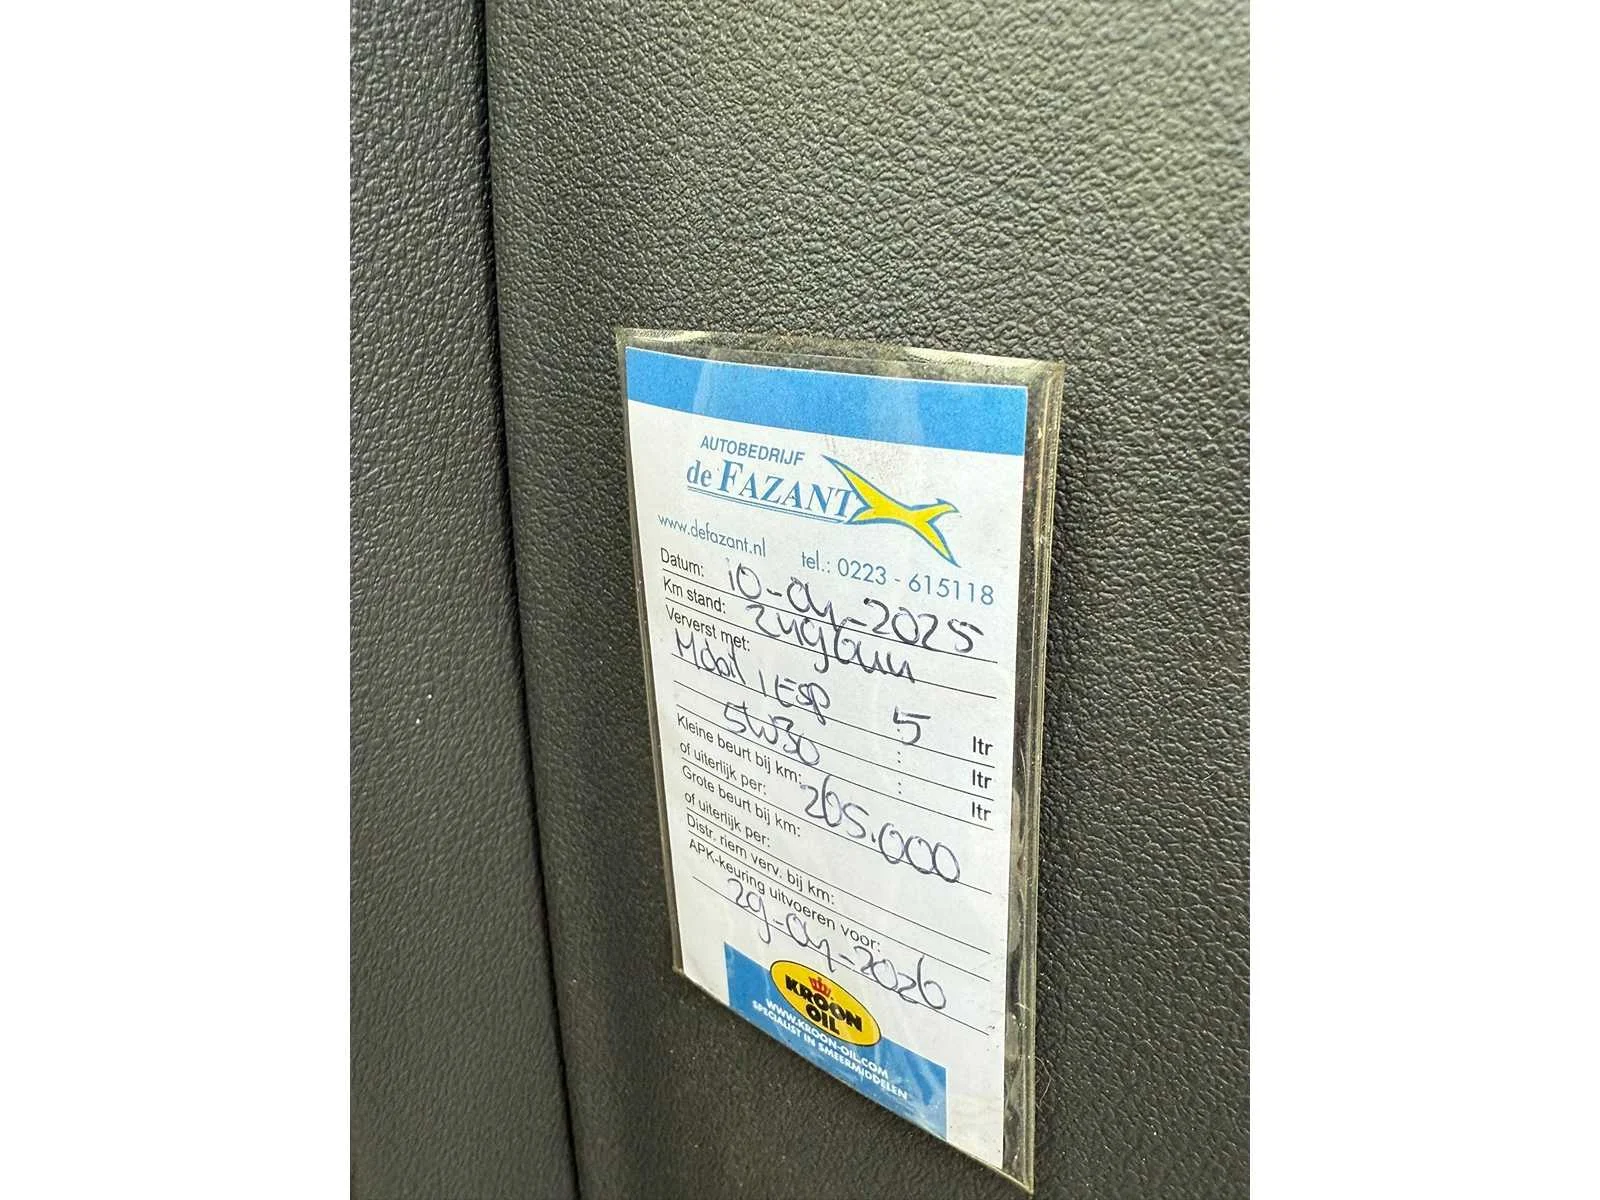 AUTOBEDRIJF
de FAZANT
www.defazant.nl tel.: 0223 - 615118
Datum: 10-04-2025
Km stand:
Ververst met:
Mobil 1 ESP 5 ltr
5W30 : ltr
: ltr
Kleine beurt bij km:
of uiterlijk per: 265.000
Grote beurt bij km:
of uiterlijk per:
Distr. riem verv. bij km:
APK-keuring uitvoeren voor:
29-04-2026
KROON
OIL
WWW.KROON-OIL.COM
SPECIALIST IN SMEERMIDDELEN